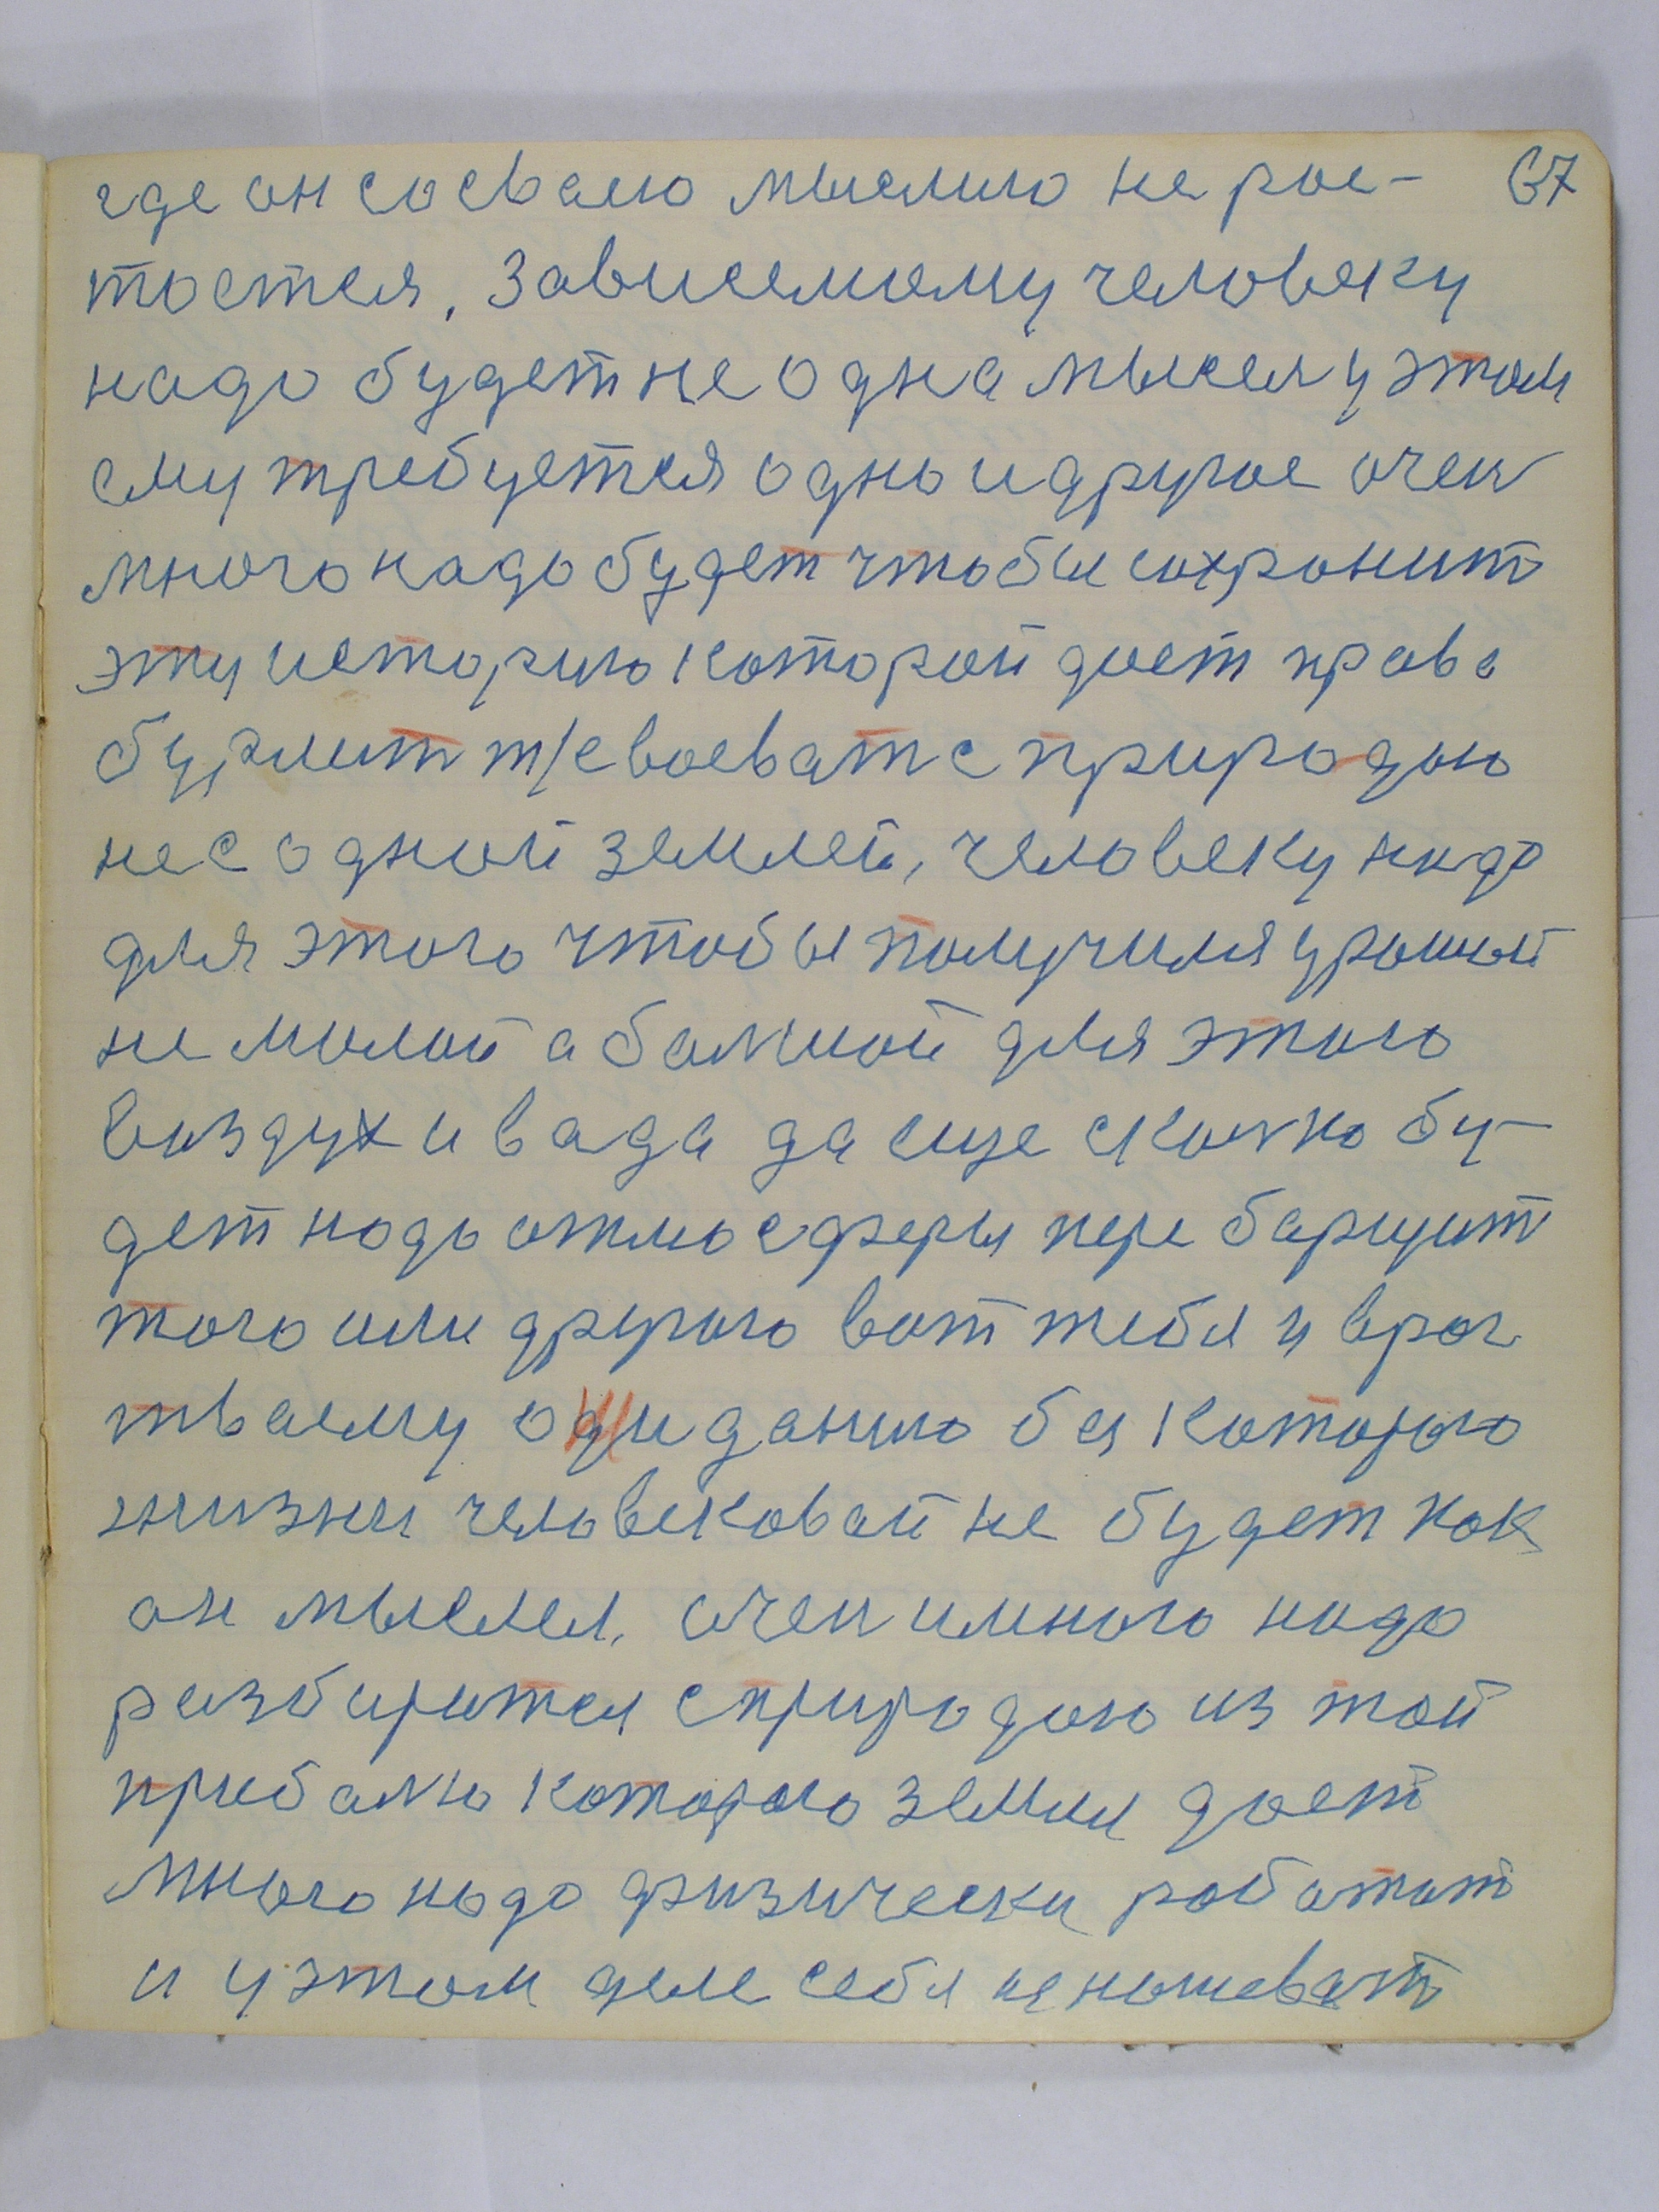 где он сосваею мыслию не рос- 67
тается, Зависемому человеку
надо будет не одна мысля у этом
ему требуется одно и другое очен
много надо будет чтобы сохронит
эту историю которой дает право
бурлит т/е воеват с природою
не с одной землей, человеку надо
для этого чтобы получился урожай
не малой а болшой для этого
Воздух и вада да еще сколко бу-
дет надо атмосферы пере барщит
того или другого вот тебя и враг
тваему ожиданию без которого
жизни человековай не будет как
он мыслел. очен имного надо
разбиратся с природою из той
прибалю которого земля дает
Много надо физически работат
и у этом деле себя